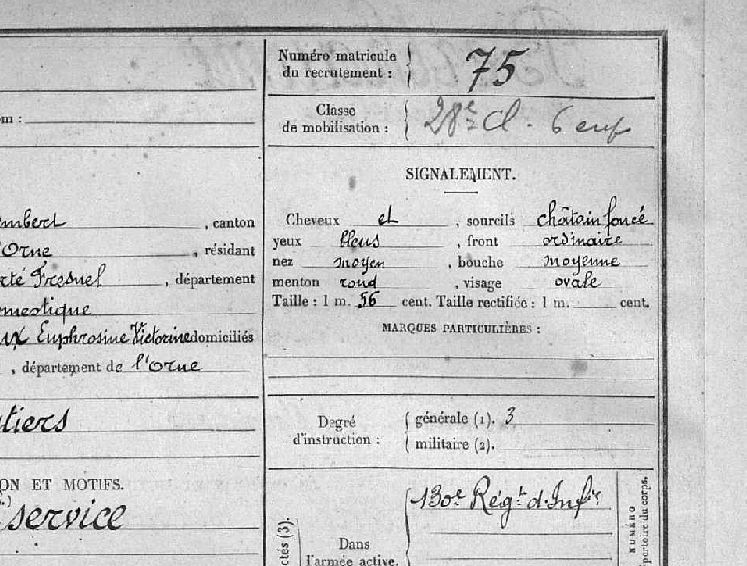 Numéro matricule
du recrutement : 75
Classe
de mobilisation : 28e Cl.
om :
SIGNALEMENT.
mbert , canton
Cheveux et , sourcils châtain foncé
Orne , résidant
yeux bleus , front ordinaire
rté Fresnel , département
nez moyen , bouche moyenne
menton rond , visage ovale
omestique
Taille : 1 m. 56 cent. Taille rectifiée : 1 m. cent.
ux Euphrosine Victorine domiciliés
MARQUES PARTICULIÈRES :
, département de l'Orne
tiers
Degré
d'instruction :
générale (1). 3
militaire (2).
ON ET MOTIFS.
service
130e Régt d'Infie
Dans
l'armée active.
ctés (3).
NUMÉRO
du corps.